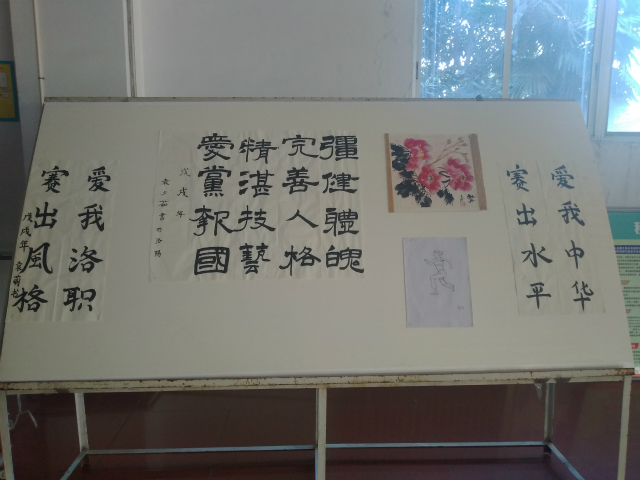 愛我中华
赛出水平
彊健體魄
完善人格
精湛技藝
愛黨報國
戊戌年
愛我洛职
赛出风格
戊戌年